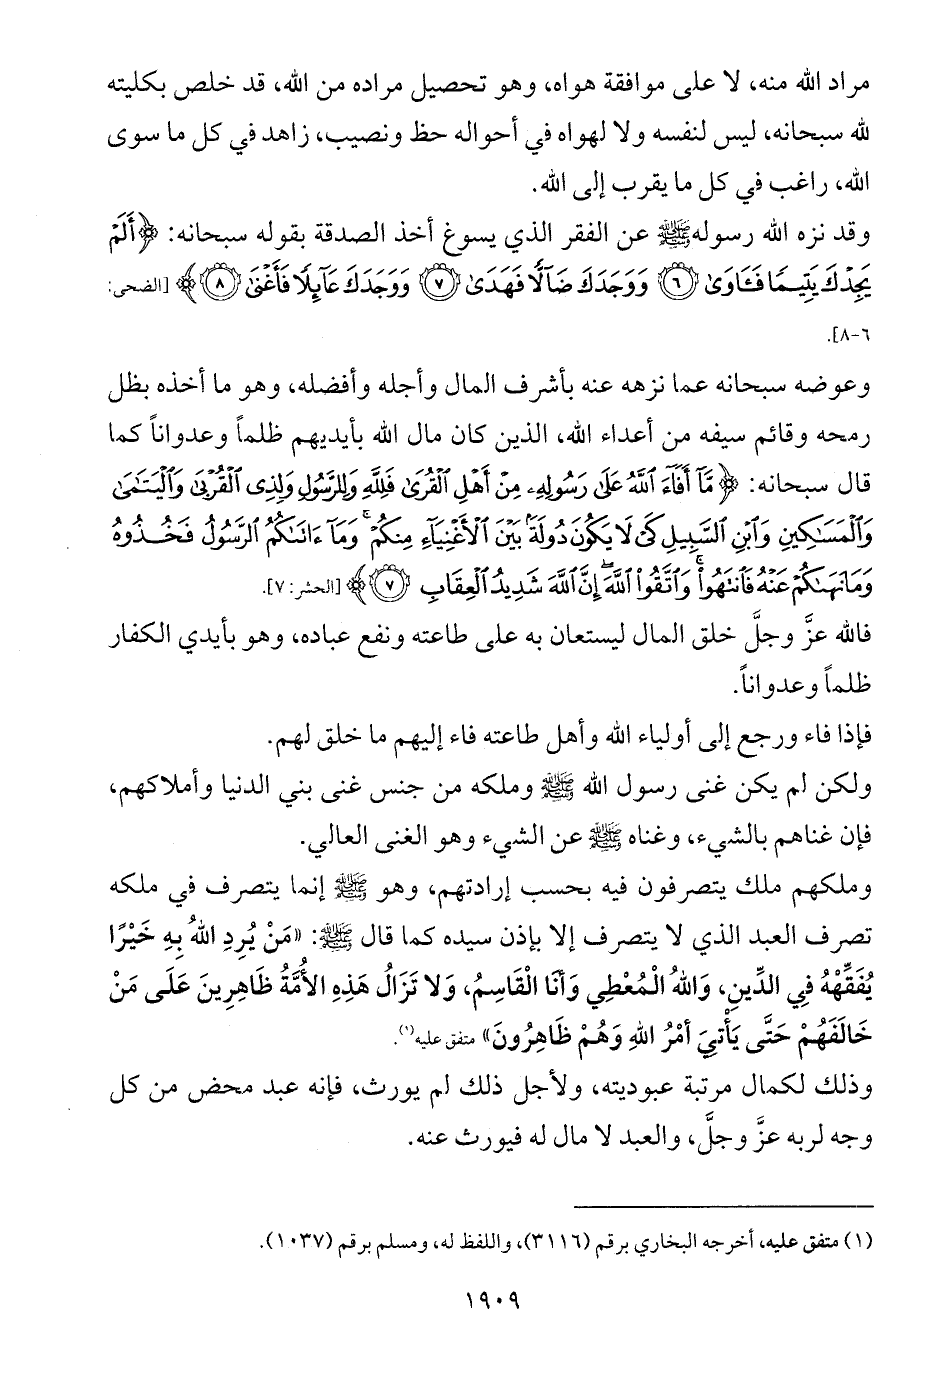 مراد الله منه، لا على موافقة هواه، وهو تحصيل مراده من الله، قد خلص بكليته
لله سبحانه، ليس لنفسه ولا لهواه في أحواله حظ ونصيب، زاهد في كل ما سوى
الله، راغب في كل ما يقرب إلى الله.
وقد نزه الله رسوله ﷺ عن الفقر الذي يسوغ أخذ الصدقة بقوله سبحانه: ﴿أَلَمْ
يَجِدْكَ يَتِيمًا فَـَٔاوَىٰ ٦ وَوَجَدَكَ ضَآلًّا فَهَدَىٰ ٧ وَوَجَدَكَ عَآئِلًا فَأَغْنَىٰ ٨﴾ [الضحى:
٦-٨].
وعوضه سبحانه عما نزهه عنه بأشرف المال وأجله وأفضله، وهو ما أخذه بظل
رمحه وقائم سيفه من أعداء الله، الذين كان مال الله بأيديهم ظلماً وعدواناً كما
قال سبحانه: ﴿مَّآ أَفَآءَ ٱللَّهُ عَلَىٰ رَسُولِهِۦ مِنْ أَهْلِ ٱلْقُرَىٰ فَلِلَّهِ وَلِلرَّسُولِ وَلِذِى ٱلْقُرْبَىٰ وَٱلْيَتَـٰمَىٰ
وَٱلْمَسَـٰكِينِ وَٱبْنِ ٱلسَّبِيلِ كَىْ لَا يَكُونَ دُولَةًۢ بَيْنَ ٱلْأَغْنِيَآءِ مِنكُمْ ۚ وَمَآ ءَاتَىٰكُمُ ٱلرَّسُولُ فَخُذُوهُ
وَمَا نَهَىٰكُمْ عَنْهُ فَٱنتَهُوا۟ ۚ وَٱتَّقُوا۟ ٱللَّهَ ۖ إِنَّ ٱللَّهَ شَدِيدُ ٱلْعِقَابِ ٧﴾ [الحشر: ٧].
فالله عزَّ وجلَّ خلق المال ليستعان به على طاعته ونفع عباده، وهو بأيدي الكفار
ظلماً وعدواناً.
فإذا فاء ورجع إلى أولياء الله وأهل طاعته فاء إليهم ما خلق لهم.
ولكن لم يكن غنى رسول الله ﷺ وملكه من جنس غنى بني الدنيا وأملاكهم،
فإن غناهم بالشيء، وغناه ﷺ عن الشيء وهو الغنى العالي.
وملكهم ملك يتصرفون فيه بحسب إرادتهم، وهو ﷺ إنما يتصرف في ملكه
تصرف العبد الذي لا يتصرف إلا بإذن سيده كما قال ﷺ: «مَنْ يُرِدِ اللهُ بِهِ خَيْرًا
يُفَقِّهْهُ فِي الدِّينِ، وَاللهُ الْمُعْطِي وَأَنَا الْقَاسِمُ، وَلا تَزَالُ هَذِهِ الأُمَّةُ ظَاهِرِينَ عَلَى مَنْ
خَالَفَهُمْ حَتَّى يَأْتِيَ أَمْرُ اللهِ وَهُمْ ظَاهِرُونَ» متفق عليه(١).
وذلك لكمال مرتبة عبوديته، ولأجل ذلك لم يورث، فإنه عبد محض من كل
وجه لربه عزَّ وجلَّ، والعبد لا مال له فيورث عنه.
(١) متفق عليه، أخرجه البخاري برقم (٣١١٦)، واللفظ له، ومسلم برقم (١٠٣٧).
١٩٠٩